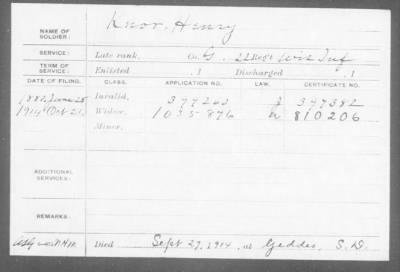 NAME OF SOLDIER: Knor, Henry
SERVICE: Late rank, Co. G, 22 Reg't Wis Inf
TERM OF SERVICE: Enlisted , 1 Discharged , 1
DATE OF FILING. CLASS. APPLICATION NO. LAW. CERTIFICATE NO.
1880, June 28 Invalid, 377263 377382
1914 Oct 21, Widow, 1035876 810206
Minor,
ADDITIONAL SERVICES:
REMARKS:
Died Sept 27, 1914, at Geddes, S.D.